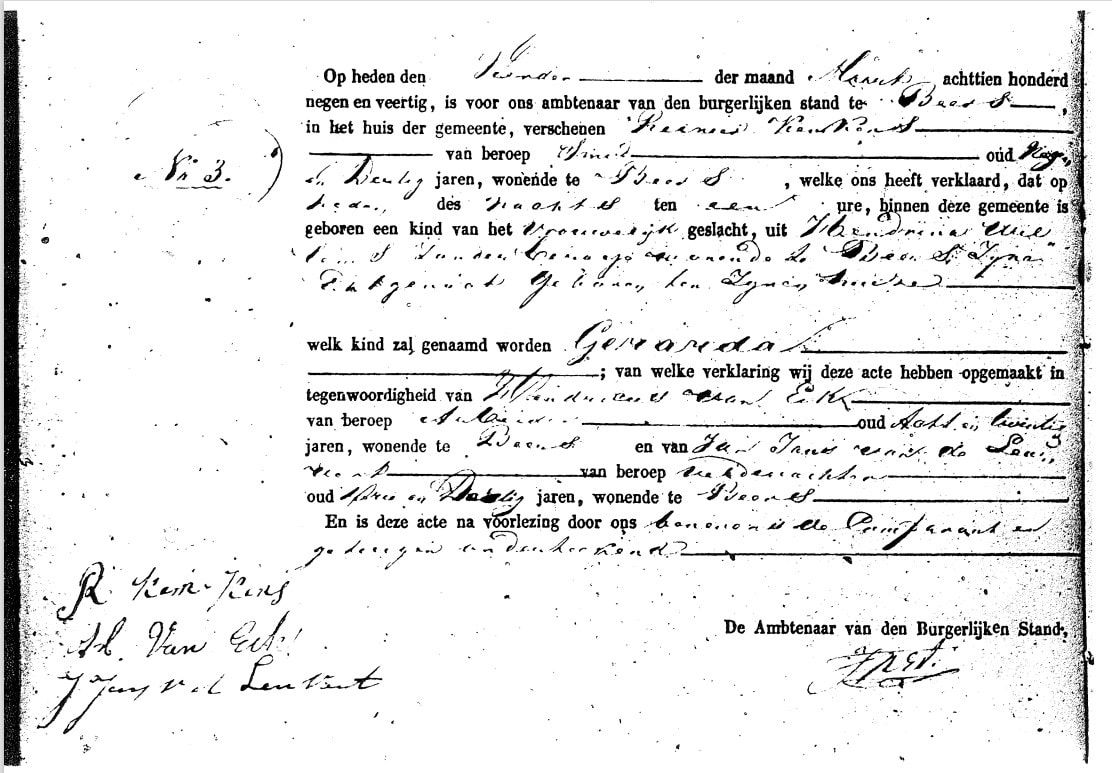 Op heden den der maand Maart achttien honderd
negen en veertig, is voor ons ambtenaar van den burgerlijken stand te Beers,
in het huis der gemeente, verschenen Reinier Kerkens
No 3.
van beroep Smid oud Negen
en Dertig jaren, wonende te Beers, welke ons heeft verklaard, dat op
heden des nachts ten een ure, binnen deze gemeente is
geboren een kind van het Vrouwelijk geslacht, uit Hendrina
wonende te Beers Zyne
Echtgenoote Geboren ten Zynen huize
welk kind zal genaamd worden Gerarda
; van welke verklaring wij deze acte hebben opgemaakt in
tegenwoordigheid van Hendricus van Eik
van beroep oud Acht en twintig
jaren, wonende te Beers en van Jan van de
van beroep veldwachter
oud Drie en Dertig jaren, wonende te Beers
En is deze acte na voorlezing door ons benevens de Comparant en
getuigen onderteekend
R Kerkens
H. Van Eik
J Jans v d Leuvert
De Ambtenaar van den Burgerlijken Stand,